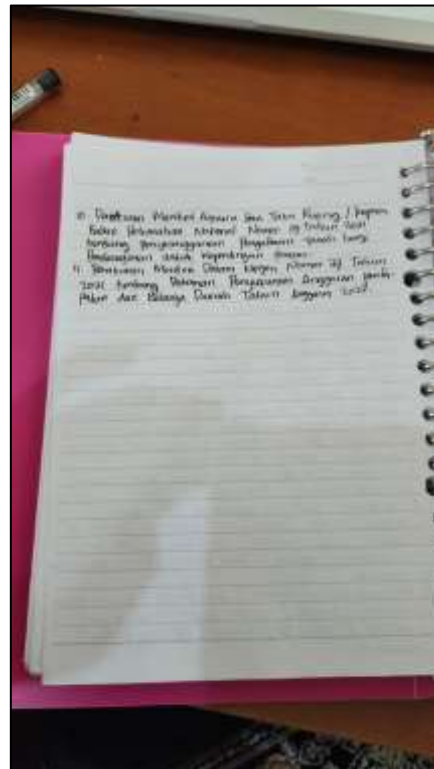 10. Peraturan Menteri Agraria dan Tata Ruang / Kepala
Badan Pertanahan Nasional Nomor 19 Tahun 2021
tentang Penyelenggaraan Pengadaan Tanah bagi
Pembangunan untuk Kepentingan Umum.
11. Peraturan Menteri Dalam Negeri Nomor 27 Tahun
2021 tentang Pedoman Penyusunan Anggaran Penda-
patan dan Belanja Daerah Tahun Anggaran 2022.